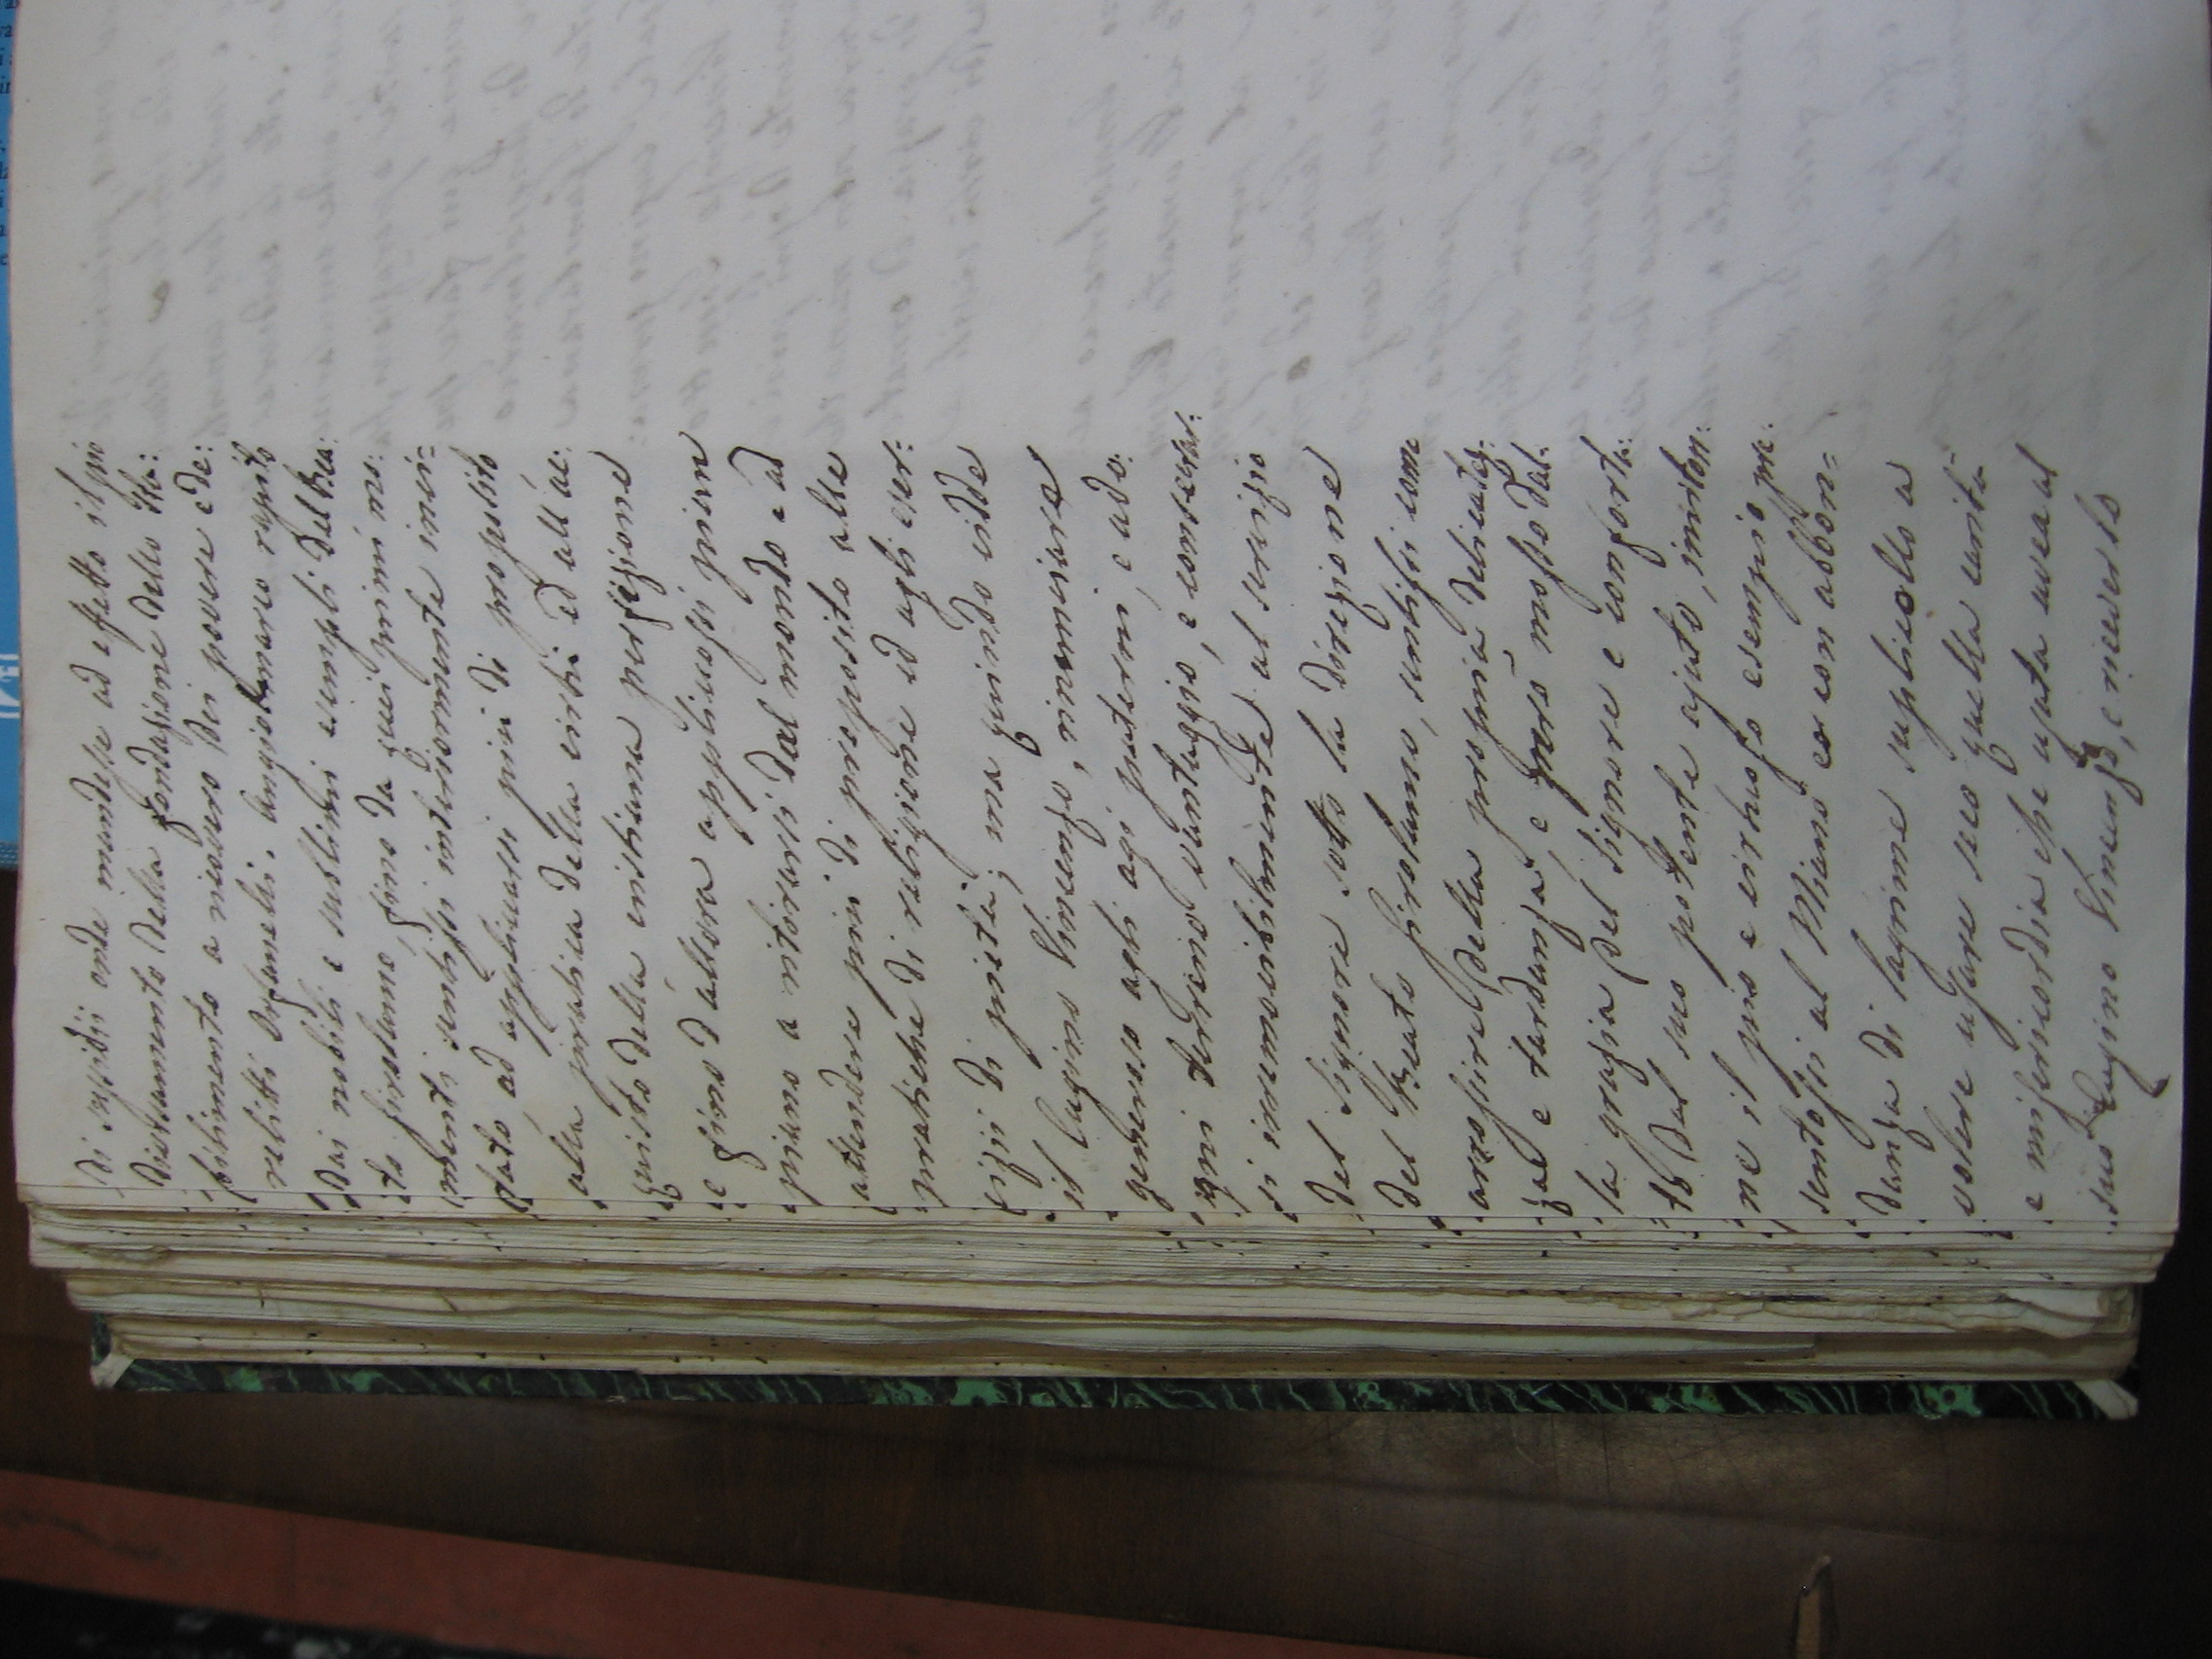 di sussidii onde mandasse ad effetto il pio
divotamento della fondazione dello Sta:
bilimento a ricovero dei povere e de:
relitti Orfanelli. Angiolmario rapito
dai nobili e sublimi esempli del Bea:
to Girolamo, fino da suoi primi mo:
menti sentissi interiormente inci:
tato ad applicarsi più di proposito
alla pratica della virtù ed all'ac:
quisto della cristiana perfezione
e fino d'allora applicossi prima
prima a ritirarsi dal mondo e ad
attendere più di proposito alle
pratiche di religione ed agli eser:
cizj di pietà; ma quando vidde
il Cugino Vincenzo, rinunciare
generoso agli agi paterni, e ad o:
gni terreno vantaggio, e consecrar:
si irremovibilmente al servizio
del Signore sotto la direzione
del Beato Girolamo, sentissi come
arrossire della propria delicatez:
za e tardanza, e però mosso dal:
la grazia del Signore e conforta:
to dal suo potente ajuto, imiton:
ne il pio e virtuoso esempio pre:
sentossi al Miani ed con abbon=
danza di lagrime supplicollo a
volere usare seco quella carità
e misericordia che usata avea al
suo Cugino Vincenzo, e riceverlo